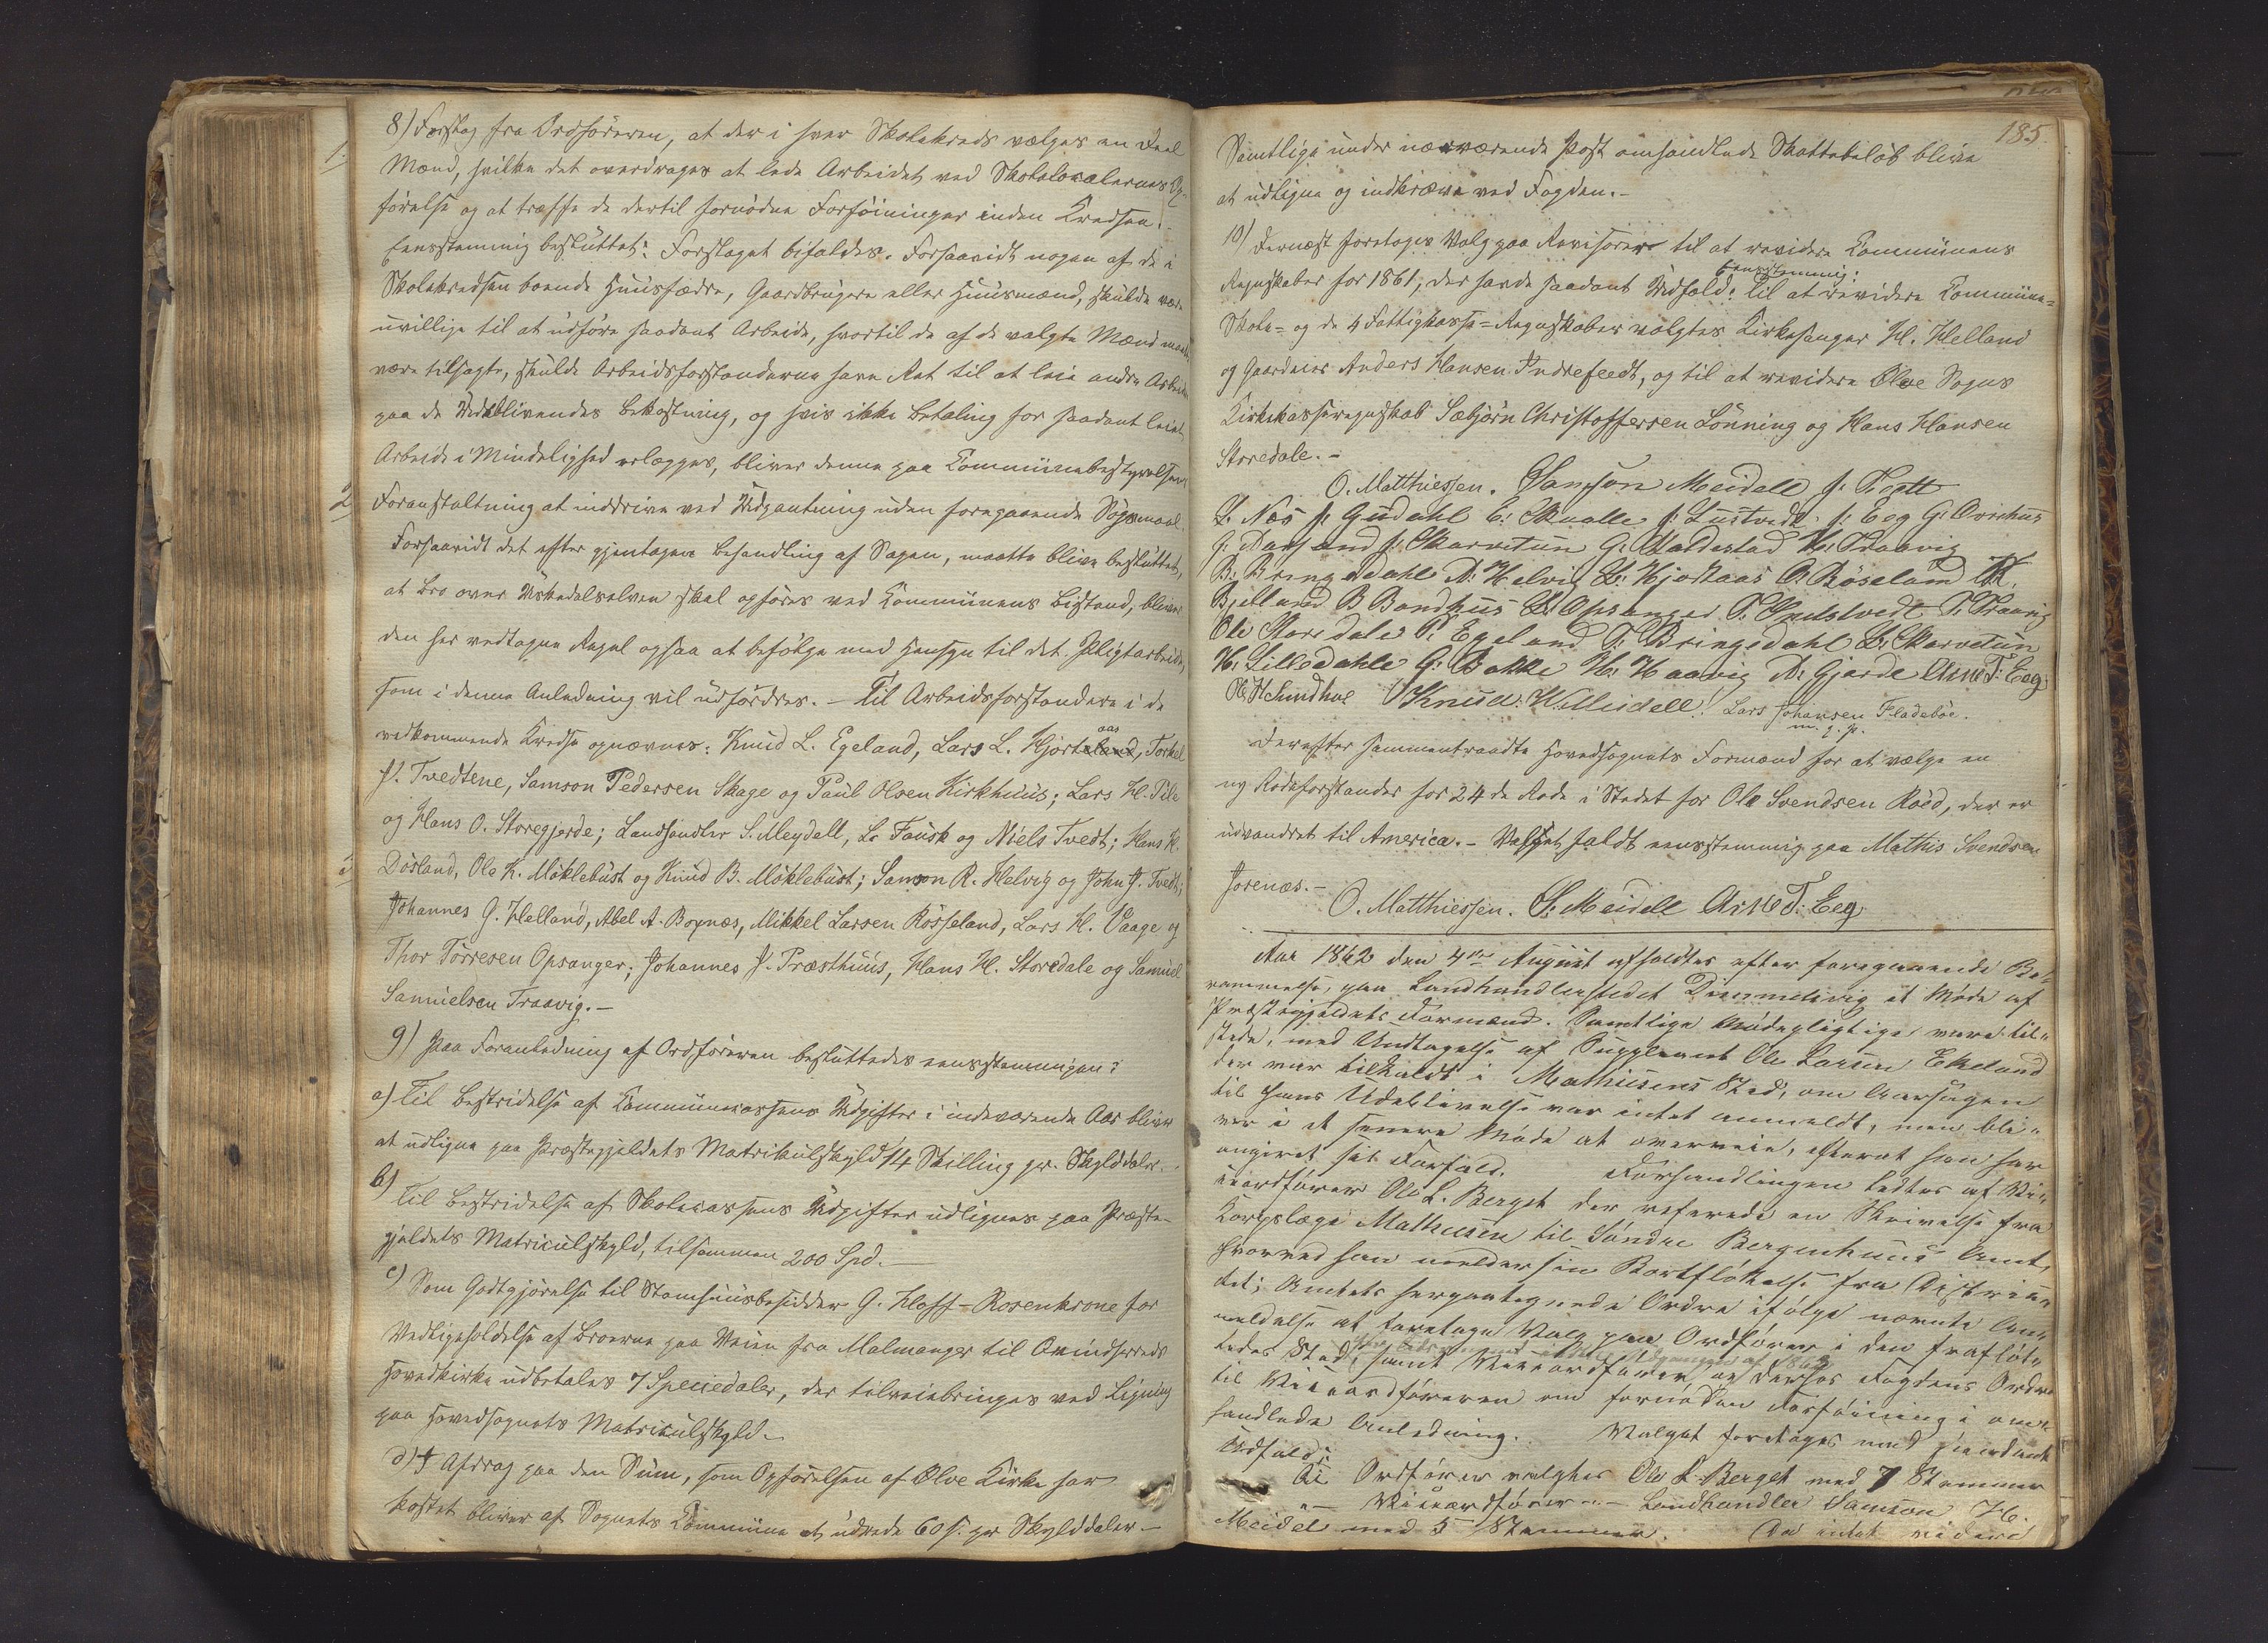 8) Forslag fra Ordföreren, at der i hver Skolekreds vælges en Deel
1.
Mænd, hvilke det overdrages at lede Arbeidet ved Skolelocalernes Op-
förelse og at træffe de dertil fornödne Forföininger inden Kredsen.-
Eensstemmig besluttet: Forslaget bifaldes. Forsaavidt nogen af de i
Skolekredsen boende Huusfædre, Gaardbrugere eller Huusmænd, skulde være
uvillige til at udföre saadant Arbeide, hvortil de af de valgte Mænd maatte
være tilsagte, skulde Arbeidsforstanderne have Ret til at leie andre Arbeidere
paa de Udeblivendes Bekostning, og hvis ikke Betaling for saadant leiet
Arbeide i Mindelighed erlægges, bliver denne paa Communebestyrelsens
2
Foranstaltning at inddrive ved Udpantning uden foregaaende Sögsmaal.
Forsaavidt det efter gjentagen Behandling af Sagen, maatte blive besluttet,
at Bro over Uskedalselven skal opföres ved Communens Bistand, bliver
den her vedtagne Regel ogsaa at befölge med Hensyn til det Pligtarbeide,
som i denne Anledning vil udfordres. - Til Arbeidsforstandere i de
vedkommende Kredse opnævnes: Knud L. Egeland, Lars L. Hjortaas, Torkel
P. Tvedtene, Samson Pedersen Skage og Paul Olsen Kirkhuus; Lars H. Pile
og Hans O. Storegjerde; Landhandler S. Meydell, L. Fausk og Niels Tvedt; Hans H.
3
Dösland, Ole K. Möklebust og Knud B. Möklebust; Samson R. Helvig og John J. Tvedt;
Johannes G. Helland, Abel A. Bognæs, Mikkel Larsen Rösseland, Lars H. Vaage og
Thor Torresen Opsanger; Johannes J. Præsthuus, Hans H. Storedale og Samuel
Samuelsen Traavig.-
9) Paa Foranledning af Ordföreren besluttedes eensstemmigen:
a) Til Bestridelse af Communecassens Udgifter i indeværende Aar bliver
at udligne paa Præstegjeldets Matrikulskyld 14 Skilling pr. Skylddaler.
b) Til Bestridelse af Skolecassens Udgifter udlignes paa Præste-
gjeldets Matriculskyld, tilsammen 200 Spd.-
c) Som Godtgjörelse til Stamhuusbesidder G. Hoff-Rosenkrone for
Vedligeholdelse af Broerne paa Veien fra Malmanger til Qvindherreds
Hovedkirke udbetales 7 Speciedaler, der tilveiebringes ved Ligning
paa Hovedsognets Matriculskyld.-
d) I Afdrag paa den Sum, som Opförelsen af Ölve Kirke har
kostet bliver af Sognets Commune at udrede 60 s. pr Skylddaler -
185.
Samtlige under nærværende Post omhandlede Skattebelöb blive
at udligne og indkræve ved Fogden.-
10) Dernæst foretoges Valg paa Revisorer til at revidere Communens
Eensstemmig:
Regnskaber for 1861; der havde saadant Udfald: Til at revidere Commune-
Skole- og de 4 Fattigkasse-Regnskaber valgtes Kirkesanger H. Helland
og Gaardeier Anders Hansen Indrefeedt, og til at revidere Ölve Sogns
Kirkekasseregnskab Sæbjörn Christoffersen Lönning og Hans Hansen
Storedale.-
O. Matthiessen. Samson Meidell J. Tvett
L. Næs J. Gudahl E. Skaalle J. Tustvedt J. Eeg G. Ovrehus
G. Aarsand J. Skarvetun G. Haldestad H. Traavig
B. Bringedahl R. Helvig L. Hjortaas O. Röseland K.
Bjelland B Bondhus L. Opsanger T. Omstvedt T. Traavig
Ole Storedale P. Egeland T. Bringedahl L. Skarvetun
H. Lilledahle G. Bakke H. Haavig A. Gjerde Arne T. Eeg
Ole H Sundhol Knud. H. Meidell. Lars Johansen Fladeböe.
m. p. P.
Derefter sammentraadte Hovedsognets Formænd for at vælge en
ny Rodeforstander for 24de Rode i Stedet for Ole Svendsen Röed, der er
udvandret til America. - Valget faldt eensstemmig paa Mathis Svendsen
Jorenæs.-
O. Matthiessen. S. Meidell Arne T. Eeg
Aar 1862 den 4de August afholdtes efter foregaaende Be-
rammelse, paa Landhandlerstedet Dimmelsvig et Möde af
Præstegjældets Formænd. Samtlige Mödepligtige vare til-
stede, med Undtagelse af Suppleant Ole Larsen Ekeland
der var tilkaldt i Mathiesens Sted, om Aarsagen
til hans Udeblivelse var intet anmeldt, men bli-
ver i et senere Möde at overveie, efterat han har
angivet sit Forfald. Forhandlingen ledtes af Vi-
ceordförer Ole L. Berget der refererede en Skrivelse fra
Korpslæge Mathiesen til Söndre Bergenhuus Amt,
hvorved han melder sin Bortflöttelse fra Distrik-
tet; Amtets herpaategnede Ordre ifölge nævnte An-
meldelse at foretage Valg paa Ordförer i den fraflöt-
tedes Sted, samt Viceordförer og derhos Fogdens Ordre
til Viceordföreren om fornöden Forföining i om-
handlede Anledning. Valget foretoges med saadant
Udfald:
Til Ordförer valgtes Ole L. Berget med 7 Stemmer
"- Viceordförer -"- Landhandler Samson H.
Meidel med 5 Stemmer. Da intet videre